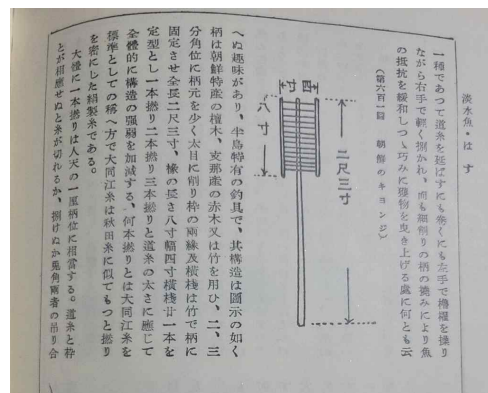 淡水魚・はす
一種であつて道糸を延ばすにも巻くにも左手で櫓櫂を操り
ながら右手で輕く捌かれ、而も細削りの柄の撓みにより魚
の抵抗を緩和しつゝ巧みに獲物を曳き上げる處に何とも云
(第六百一圖 朝鮮のキヨンジ)
四寸
八寸
二尺三寸
へぬ趣味があり、半島特有の釣具で、其構造は圖示の如く
柄は朝鮮特産の檀木、支那産の赤木又は竹を用ひ、二、三
分角位に柄元を少く太目に削り枠の兩縁及横棧は竹で柄に
固定させ全長二尺三寸、椽の長さ八寸幅四寸横棧廿一本を
定型とし一本撚り二本撚り三本撚りと道糸の太さに應じて
全體的に構造の强弱を加減する。何本撚りとは大同江糸を
標準としての稱へ方で大同江糸は秋田糸に似てもつと撚り
を密にした絹製糸である。
大體に一本撚りは人天の一厘柄位に相當する。道糸と枠
とが相應せぬと糸が切れるか、捌けぬか兎角兩者の吊り合